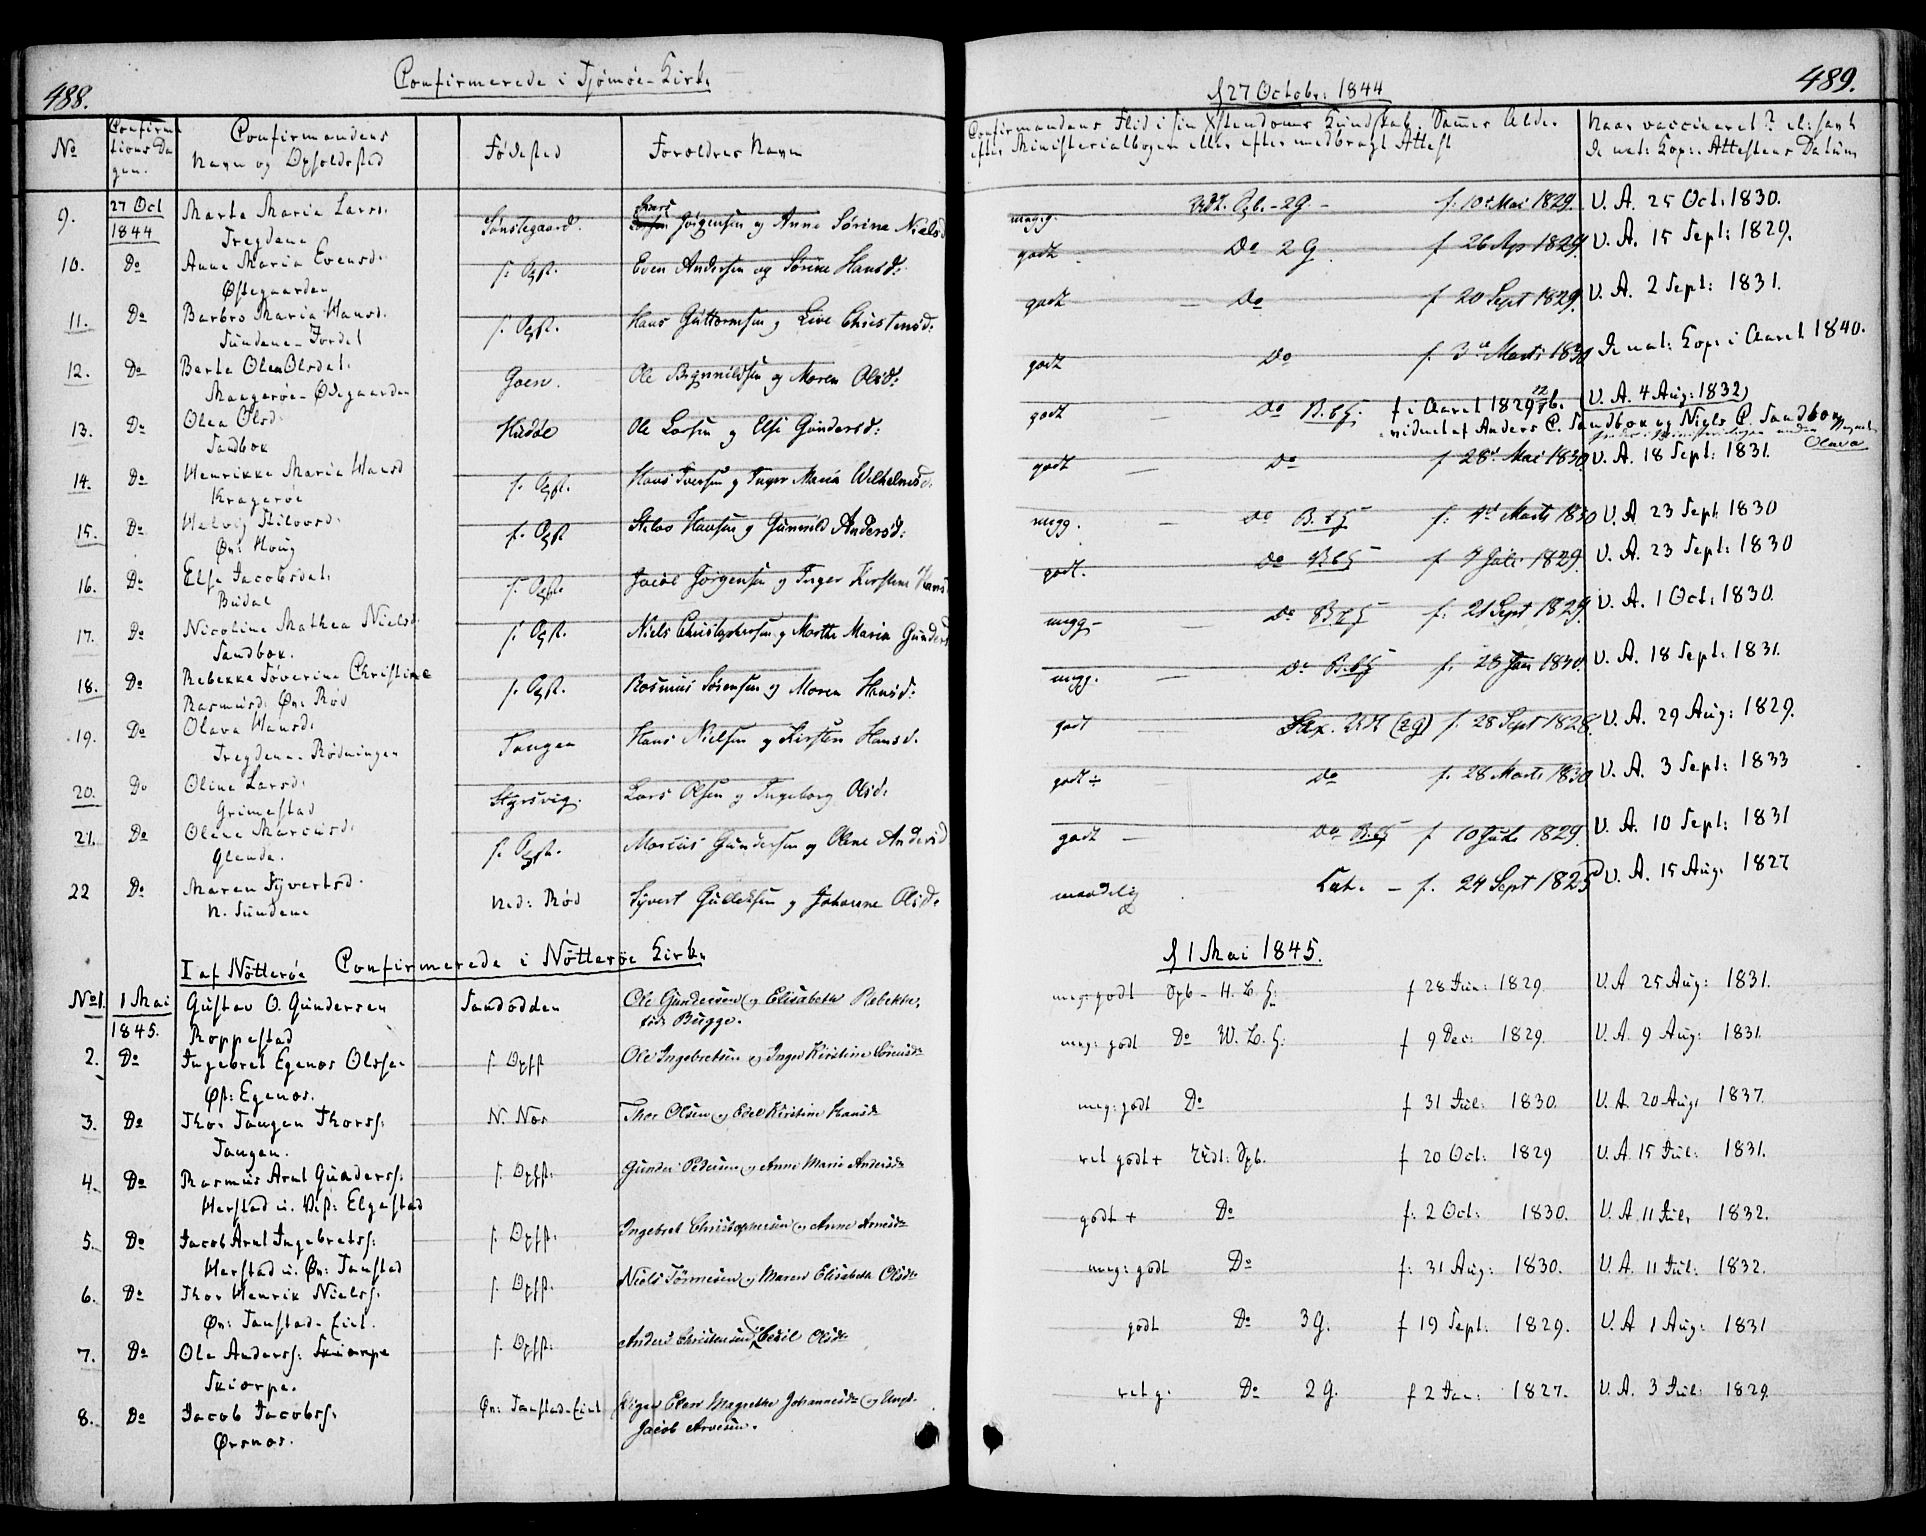 488.
Confirmerede i Tjømøe-Kirke
No
Confirmationsdagen.
Confirmandens
Navn og Opholdsted
Fødested
Forældres Navn
9.
27 Oct
1844
Marte Maria Lars:
Tregdene
Sønstegaard.
Jørgensen og Anne Sørine Nielsd
10.
Do
Anne Maria Evensd:
Østegaarden
f: Opst.
Even Andersen og Sørine Hansd:
11.
Do
Barbro Maria Hansd:
Sundene-Jordet
f: Opst.
Hans Guttormsen og Live Christensd:
12.
Do
Berte Olea Olsdat:
Maagerøe-Ødegaarden
Goen.
Ole Brynnildsen og Maren Olsd:
13.
Do
Olea Olsd:
Sandbox
Hudøe
Ole Larsen og Elsi Gundersd:
14.
Do
Henrikke Maria Hansd
Kragerøe
f. Opst.
Hans Iversen og Inger Maria Wilhelmsd:
15.
Do
Helvig Stilovsd:
Øv: Houg
f. Opst
Hansen og Gunnild Andersd:
16.
Do
Else Jacobsdat:
Budal
f: Opst.
Jacob Jørgensen og Inger Kirstine Hansd
17.
Do
Nicoline Mathea Nielsd:
Sandbox.
f: Opst.
Niels Christophersen og Marthe Maria Gundersd
18.
Do
Rebekke Søverine Christine
Rasmusd: Øv: Rød
f. Opst.
Rasmus Sørensen og Maren Hansd:
19.
Do
Olava Hansd:
Tregdene-Rødningen
Tangen
Hans Nielsen og Kirsten Hansd.
20.
Do
Oline Larsd:
Grimestad
Styrsvig.
Lars Olsen og Ingeborg Olsd:
21.
Do
Olene Marcusd:
Glende.
f. Opst.
Marcus Gundersen og Olene Andersd
22
Do
Maren Syvertsd.
N. Sundene
Ned: Rød
Syvert Gulleksen og Johanne Olsd:
I af Nøtterøe Confirmerede i Nøtterøe Kirke
No1.
1 Mai
1845.
Gustav O. Gundersen
Roppestad
Sandodden
Ole Gundersen og Elisabeth Rebekke,
fød Bugge.
2.
Do
Ingebret Egenæs Olsse.
Øst: Egenæs.
f. Opst
Ole Ingebretsen og Inger Kirstine Sørensd:
3.
Do
Thor Tangen Thorss:
Tangen.
N. Næs
Thor Olsen og Edel Kirstine Hansd:
4.
Do
Rasmus Arnt Gunderss:
Herstad u. Vest: Elgestad
f. Opst.
Gunder Pedersen og Anne Marie Andersd:
5.
Do
Jacob Arnt Ingebretss:
Herstad u. Øv: Tanstad
f. Opst.
Ingebret Christophersen og Anne Arnesd:
6.
Do
Thor Henrik Nielss:
Øv: Tanstad-Eiet.
f. Opst.
Niels Tønnesen og Maren Elisabeth Olsd:
7.
Do
Ole Anderss: Skiærpe
Skiærpe.
f. Opst.
Anders Christensen og Cecil Olsd:
8.
Do
Jacob Jacobss:
Ørsnæs.
Øv: Tanstad-Eiet
Pigen Elen Magrethe Johannesd: og Ungk.
Jacob Arvesen.
489.
d 27 Octobr: 1844
Confirmandens Flid i sin Xstendoms Kundskab. Sammes Alder
efter Ministerialbogen eller efter medbragt Attest
Naar vaccineret? el: havt
de nat: Kop:. Attestens Datum
megg.
Udt. Opb. - 2G -
f: 10de Mai 1829.
V. A. 25 Oct: 1830.
godt
Do 2G
f 26 Ap 1829.
V. A. 15 Sept: 1829.
godt
Do
f 20 Sept 1829.
V. A. 2 Sept: 1831.
godt
Do
f: 3de Marts 1830
De nat: Kop: i Aaret 1840.
godt
Do B.b.G.
f i Aaret 1829
V. A. 4 Aug: 1832)
vidnet af Anders C. Sandbox og Niels C. Sandbox
Olava
godt
Do
f 28de Mai 1830
V. A. 18 Sept: 1831.
megg.
Do B.b.G
f: 4de Marts 1830
V. A. 23 Sept 1830
godt.
Do B.b.G
f 7 Juli 1829
V. A. 23 Sept: 1830
megg-
Do B.b.G
f: 21 Sept 1829.
V. A. 1 Oct: 1830.
megg.
Do B.b.G
f: 23 Jan 1830.
V. A. 18 Sept: 1831.
godt
Udt (2g)
f. 28 Sept 1828.
V. A. 29 Aug: 1829.
godt
Do
f. 28 Marts 1830
V. A. 3 Sept: 1833
godt
Do B.b.G
f 10 Juli 1829
V. A. 10 Sept: 1831
maadelig
Cat. -
f. 24 Sept 1825
V. A. 15 Aug: 1827
d 1 Mai 1845.
meg: godt Opb - H. L. G:
f 28 Jun: 1829
V. A 25 Aug: 1831.
meg: godt Do W. L. G:
f 9 Dec: 1829.
V. A. 9 Aug: 1831.
meg: godt Do
f 31 Jul: 1830.
V. A. 20 Aug: 1837.
ret godt + Udt: Opb.
f 20 Oct: 1829
V. A. 15 Jul: 1831.
godt + Do
f: 2 Oct: 1830.
V. A. 11 Jul: 1832.
meg: godt Do
f: 31 Aug: 1830.
V. A. 11 Jul: 1832.
godt Do 3G.
f 19 Sept: 1829.
V. A 1 Aug: 1831
ret g. Do 2G.
f 2 Jan: 1827.
V. A. 3 Jul: 1829.